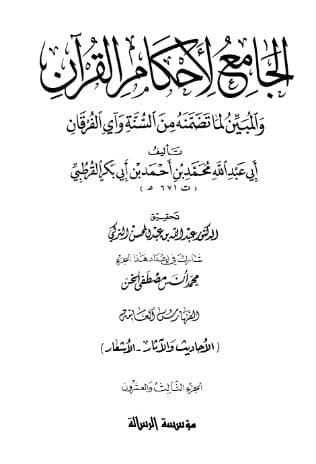 الجَامِعُ لِأَحْكَامِ القُرْآنِ
وَالمُبَيِّنُ لِمَا تَضَمَّنَهُ مِنَ السُّنَّةِ وَآيِ الفُرْقَانِ
تَأليف
أَبِي عَبْدِ اللَّهِ مُحَمَّدِ بْنِ أَحْمَدَ بْنِ أَبِي بَكْرٍ القُرْطُبِيِّ
(ت ٦٧١ هـ)
تحقيق
الدكتور عبد الله بن عبد المحسن التركي
شارك في إعداد هذا الجزء
محمد أنس مصطفى الخن
الفهارس العامة
(الأحاديث والآثار - الأشعار)
الجزء الثالث والعشرون
مؤسسة الرسالة